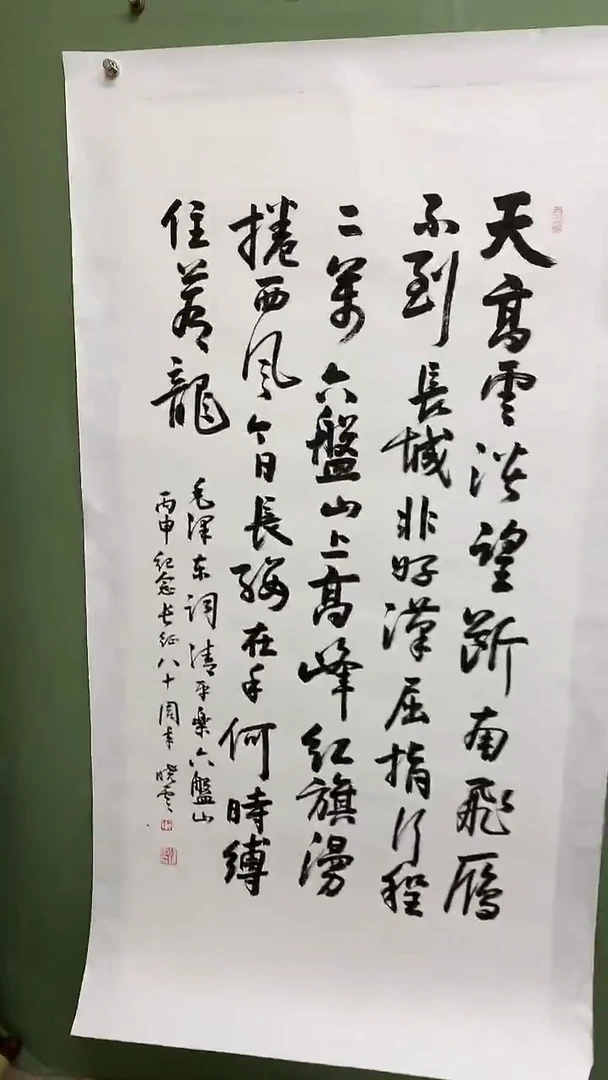 天高雲淡望斷南飛鴈
不到長城非好漢屈指行程
二萬六盤山上高峰紅旗漫
捲西風今日長纓在手何時縛
住蒼龍
毛澤东词清平樂六盤山
丙申纪念长征八十周年晓雲